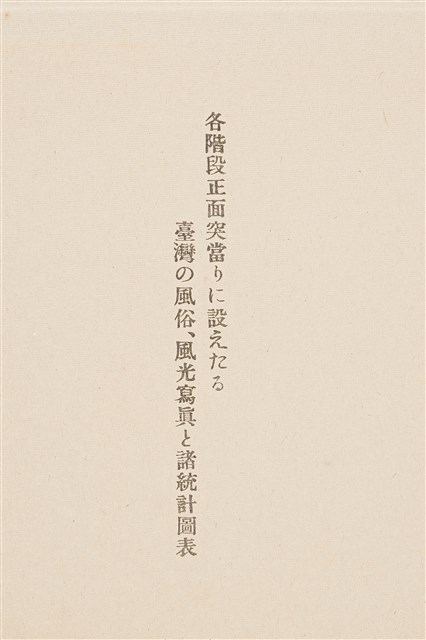 各階段正面突當りに設えたる
臺灣の風俗、風光寫眞と諸統計圖表